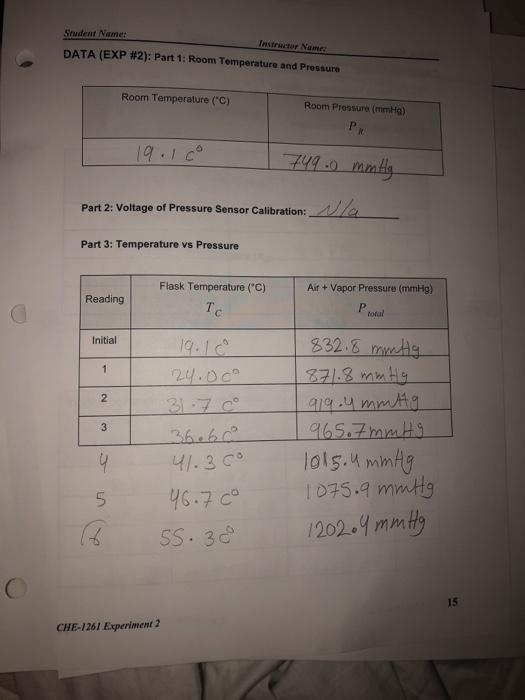 Student Name:
Instructor Name:
DATA (EXP #2): Part 1: Room Temperature and Pressure
Room Temperature (°C)
Room Pressure (mmHg)
P R
19.1 c°
749.0 mmHg
Part 2: Voltage of Pressure Sensor Calibration: N/a
Part 3: Temperature vs Pressure
Reading
Flask Temperature (°C)
T C
Air + Vapor Pressure (mmHg)
P total
Initial 19.1 c° 832.8 mmHg
1 24.0 c° 871.8 mmHg
2 31.7 c° 919.4 mmHg
3 36.6 c° 965.7 mmHg
4 41.3 c° 1015.4 mmHg
5 46.7 c° 1075.9 mmHg
6 55.3 c° 1202.4 mmHg
15
CHE-1261 Experiment 2